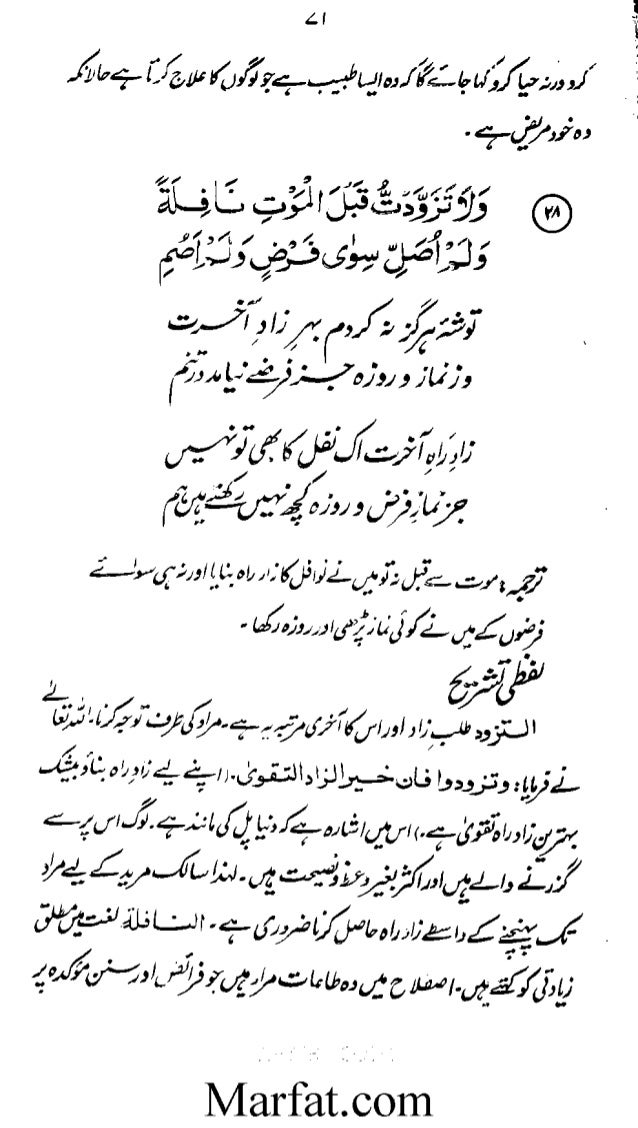 ۷۱
کرو ورنہ حیا کرو کہا جائے گا کہ وہ ایسا طبیب ہے جو لوگوں کا علاج کرتا ہے حالانکہ
وہ خود مریض ہے۔
۲۸
وَلَا تَزَوَّدْتُ قَبْلَ الْمَوْتِ نَافِلَةً
وَلَمْ اُصَلِّ سِوٰى فَرْضٍ وَلَمْ اَصُمِ
توشۂ ہرگز نہ کردم بہرِ زادِ آخرت
وز نماز و روزہ جز فرضے نیامد در تنم
زادِ راہِ آخرت اک نفل کا بھی تو نہیں
جز نمازِ فرض و روزہ کچھ نہیں رکھتے ہیں ہم
ترجمہ: موت سے قبل نہ تو میں نے نوافل کا زادِ راہ بنایا اور نہ ہی سوائے
فرضوں کے میں نے کوئی نماز پڑھی اور روزہ رکھا۔
لفظی تشریح
التزود طلب زاد اور اس کا آخری مرتبہ یہ ہے۔ مراد کی طرف توجہ کرنا۔ اللہ تعالےٰ
نے فرمایا: وتزودوا فان خیر الزاد التقویٰ۔ (اپنے لیے زادِ راہ بناؤ بیشک
بہترین زادِ راہ تقویٰ ہے۔) اس میں اشارہ ہے کہ دنیا پل کی مانند ہے۔ لوگ اس پر سے
گزرنے والے ہیں اور اکثر بغیر وعظ و نصیحت ہیں۔ لہٰذا سالک مرید کے لیے مراد
تک پہنچنے کے واسطے زادِ راہ حاصل کرنا ضروری ہے۔ النافلة لغت میں مطلق
زیادتی کو کہتے ہیں۔ اصطلاح میں وہ طاعات مراد ہیں جو فرائض اور سنن مؤکدہ پر
Marfat.com